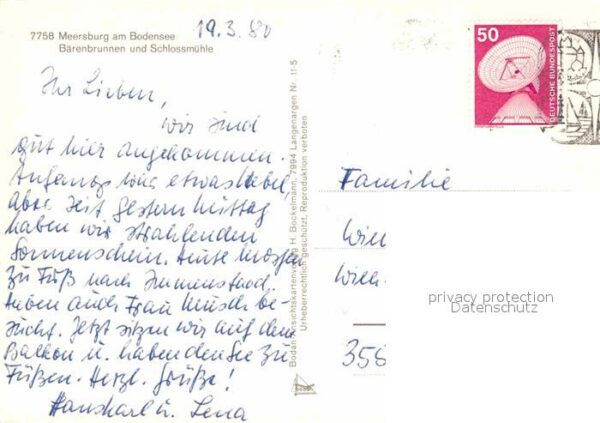 19.3.80
7758 Meersburg am Bodensee
Bärenbrunnen und Schlossmühle
Ihr Lieben,
wir sind
gut hier angekommen.
Anfangs war etwas Nebel
aber seit gestern Mittag
haben wir strahlenden
Sonnenschein. Heute morgen
zu Fuß nach Immenstaad.
Haben auch Frau Musch be-
sucht. Jetzt sitzen wir auf dem
Balkon u. haben den See zu
Füßen. Herzl. Grüße!
Hanskarl u. Lena
Bodan-Ansichtskartenverlag H. Bockelmann, 7994 Langenargen Nr. 11-5
Urheberrechtlich geschützt. Reproduktion verboten
50
DEUTSCHE BUNDESPOST
Familie
Will
Wilh
355
privacy protection
Datenschutz